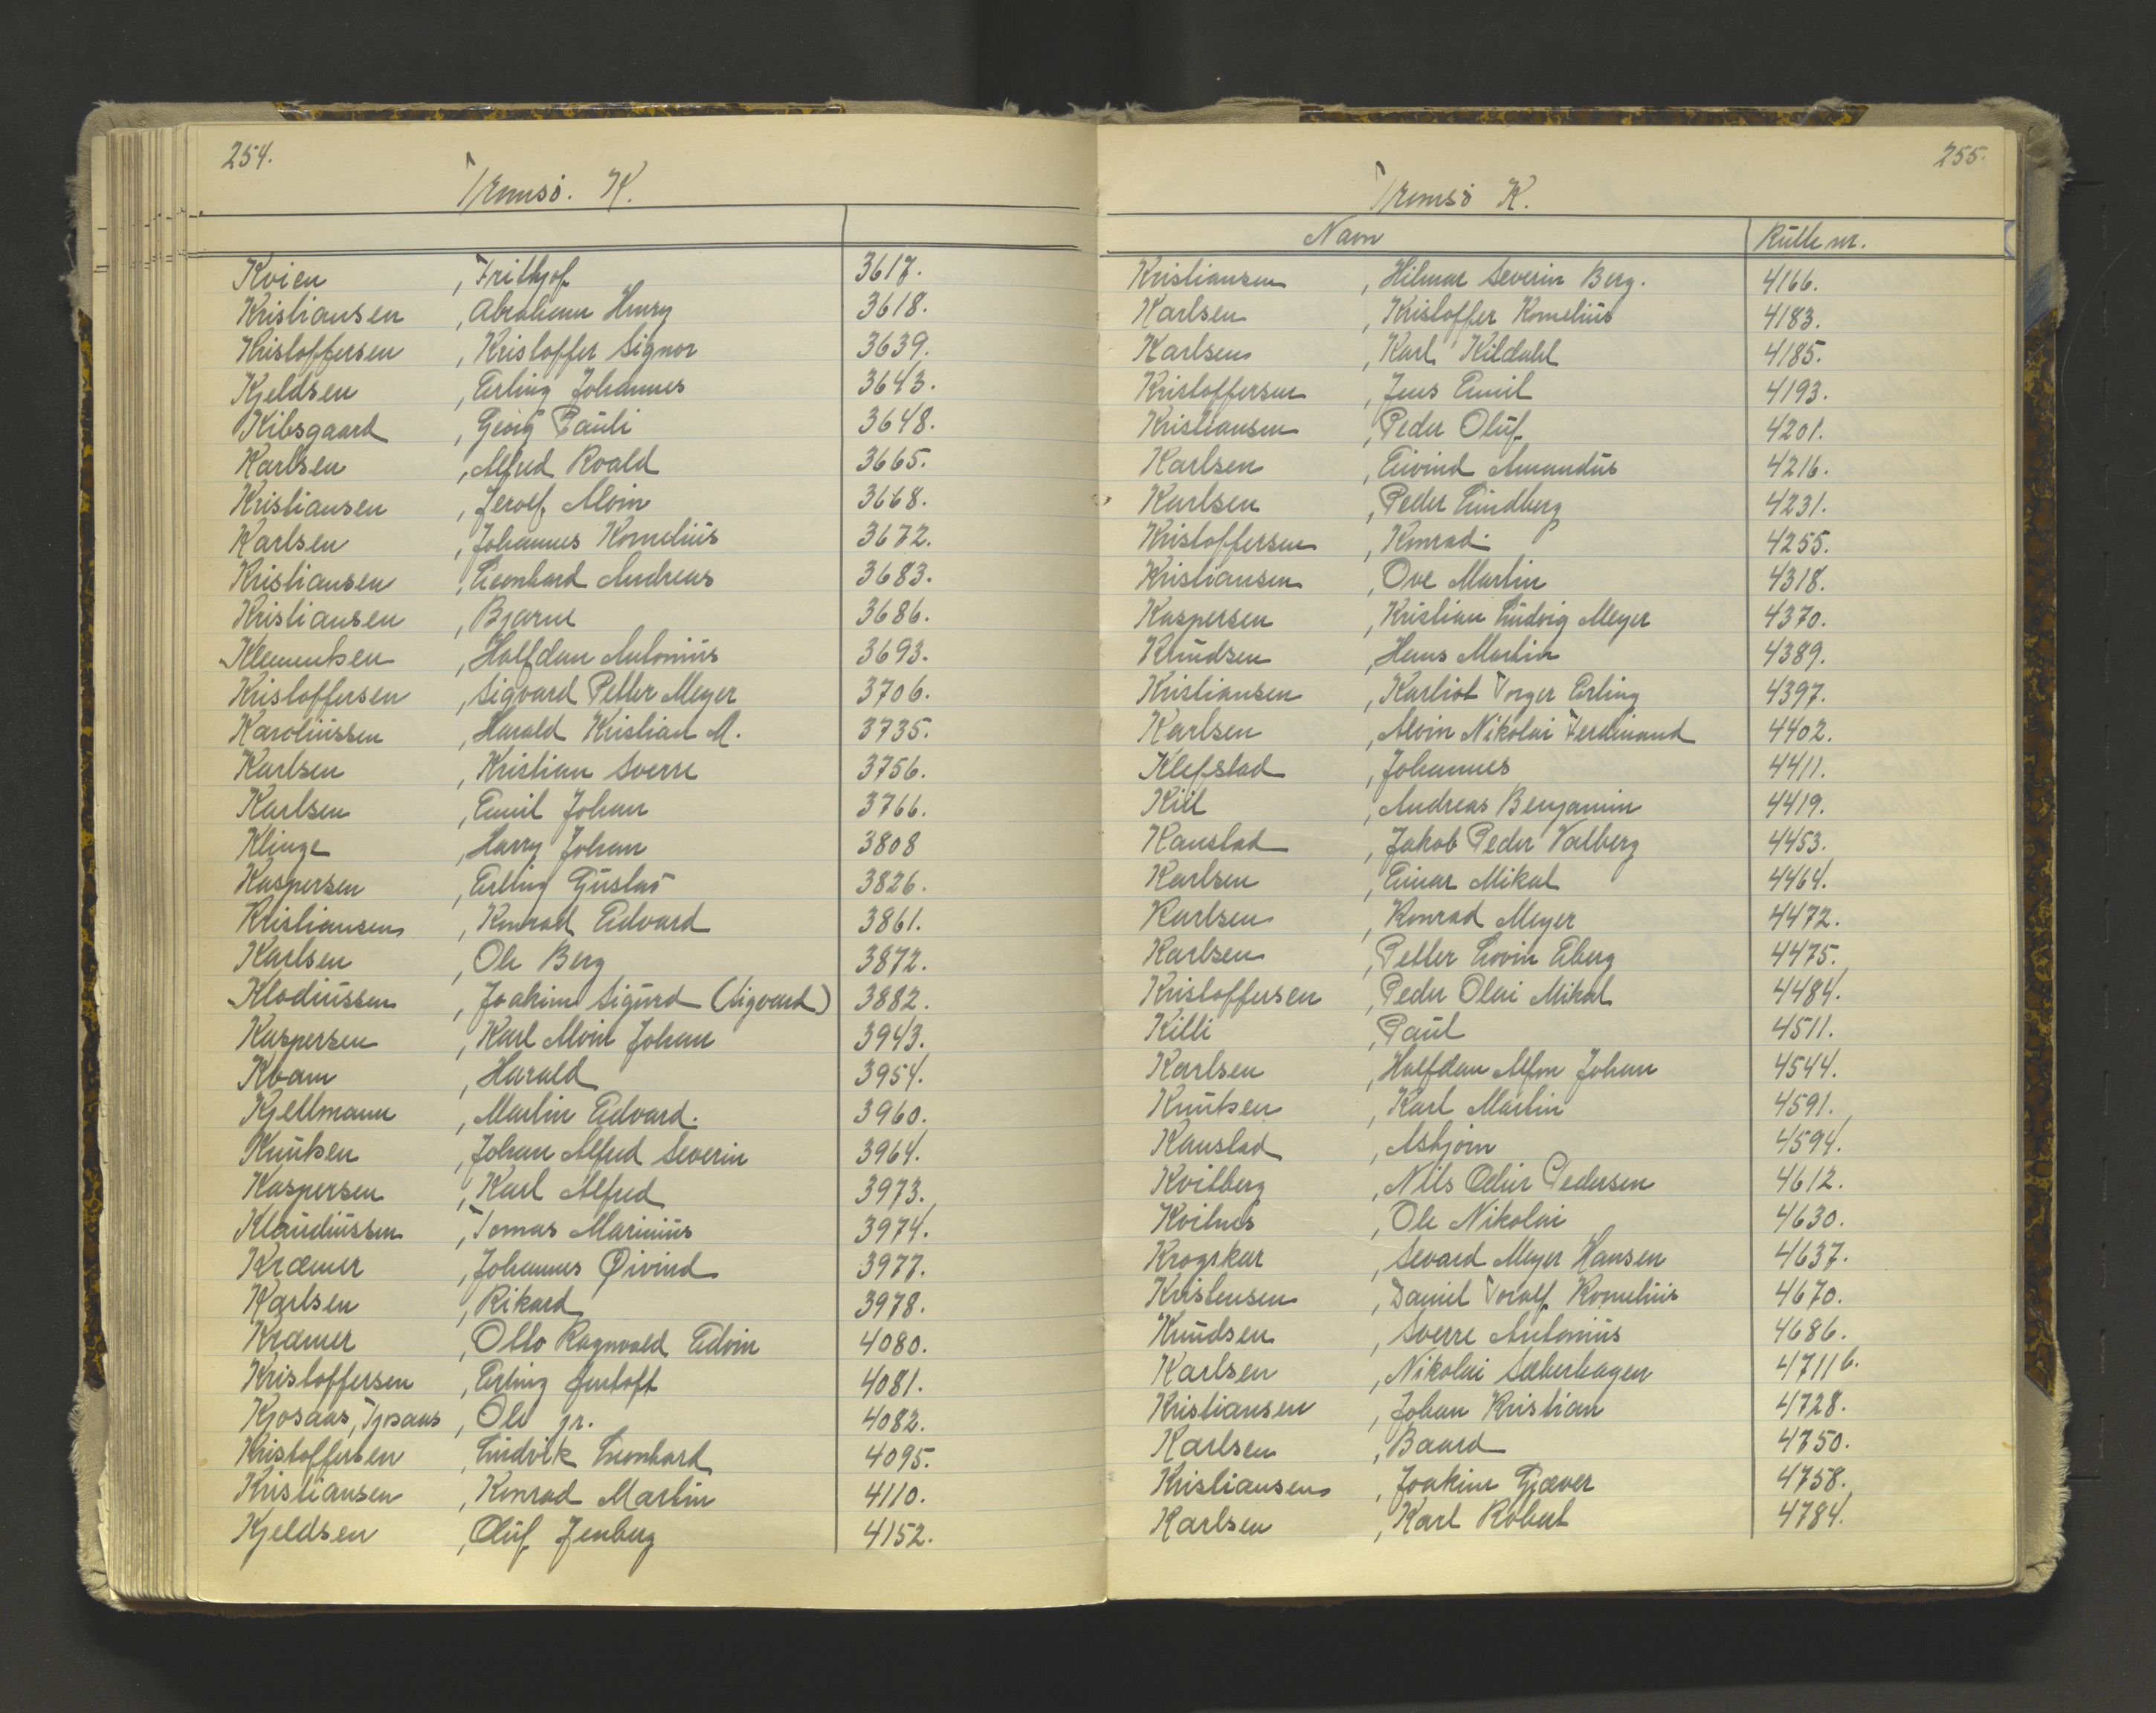 254.
Tromsø. K.
Kvien, Frithjof 3617.
Kristiansen, Abraham Henry 3618.
Kristoffersen, Kristoffer Signor 3639.
Kjeldsen, Erling Johannes 3643.
Kibsgaard, Georg Pauli 3648.
Karlsen, Alfred Roald 3665.
Kristiansen, Jerolf Alvin 3668.
Karlsen, Johannes Kornelius 3672.
Kristiansen, Leonhard Andreas 3683.
Kristiansen, Bjarne 3686.
Klemetsen, Halfdan Antonius 3693.
Kristoffersen, Sigvard Petter Meyer 3706.
Karoliussen, Harald Kristian A. 3735.
Karlsen, Kristian Sverre 3756.
Karlsen, Emil Johan 3766.
Klinge, Harry Johan 3808
Kaspersen, Erling Gustav 3826.
Kristiansen, Konrad Edvard 3861.
Karlsen, Ole Berg 3872.
Klodiussen, Joakim Sigurd (Sigvard) 3882.
Kaspersen, Karl Alvin Johan 3943.
Kvam, Harald 3954.
Kjellmann, Martin Edvard. 3960.
Knutsen, Johan Alfred Severin 3964.
Kaspersen, Karl Alfred 3973.
Klaudiussen, Tomas Marinius 3974.
Kræmer, Johannes Øivind 3977.
Karlsen, Rikard 3978.
Kræmer, Otto Ragnvald Edvin 4080.
Kristoffersen, Erling Jentoft 4081.
Kjosaas, Tjosaas, Ole jr. 4082.
Kristoffersen, Ludvik Leonhard 4095.
Kristiansen, Konrad Martin 4110.
Kjeldsen, Oluf Jenberg 4152.
255.
Tromsø K.
Navn Rulle nr.
Kristiansen, Hilmar Severin Berg. 4166.
Karlsen, Kristoffer Kornelius 4183.
Karlsen, Karl Kildahl 4185.
Kristoffersen, Jens Emil 4193.
Kristiansen, Peder Oluf 4201.
Karlsen, Eivind Amandus 4216.
Karlsen, Peder Lindberg 4231.
Kristoffersen, Konrad 4255.
Kristiansen, Ove Martin 4318.
Kaspersen, Kristian Ludvig Meyer 4370.
Knudsen, Hans Martin 4389.
Kristiansen, Karliot Torger Erling 4397.
Karlsen, Alvin Nikolai Ferdinand 4402.
Klefstad, Johannes 4411.
Kiil, Andreas Benjamin 4419.
Kanstad, Jakob Peder Valberg 4453.
Karlsen, Einar Mikal 4464.
Karlsen, Konrad Meyer 4472.
Karlsen, Petter Lovin Eberg 4475.
Kristoffersen, Peder Olai Mikal 4484.
Killi, Paul 4511.
Karlsen, Halfdan Alfon Johan 4544.
Knutsen, Karl Martin 4591.
Kanstad, Asbjørn 4594.
Kvitberg, Nils Odin Pedersen 4612.
Kvitnes, Ole Nikolai 4630.
Krogskar, Sevard Meyer Hansen 4637.
Kristensen, Daniel Toralf Kornelius 4670.
Knudsen, Sverre Antonius 4686.
Karlsen, Nikolai Sæterhagen 4711 b.
Kristiansen, Johan Kristian 4728.
Karlsen, Baard 4750.
Kristiansen, Joakim Gjæver 4758.
Karlsen, Karl Robert 4784.